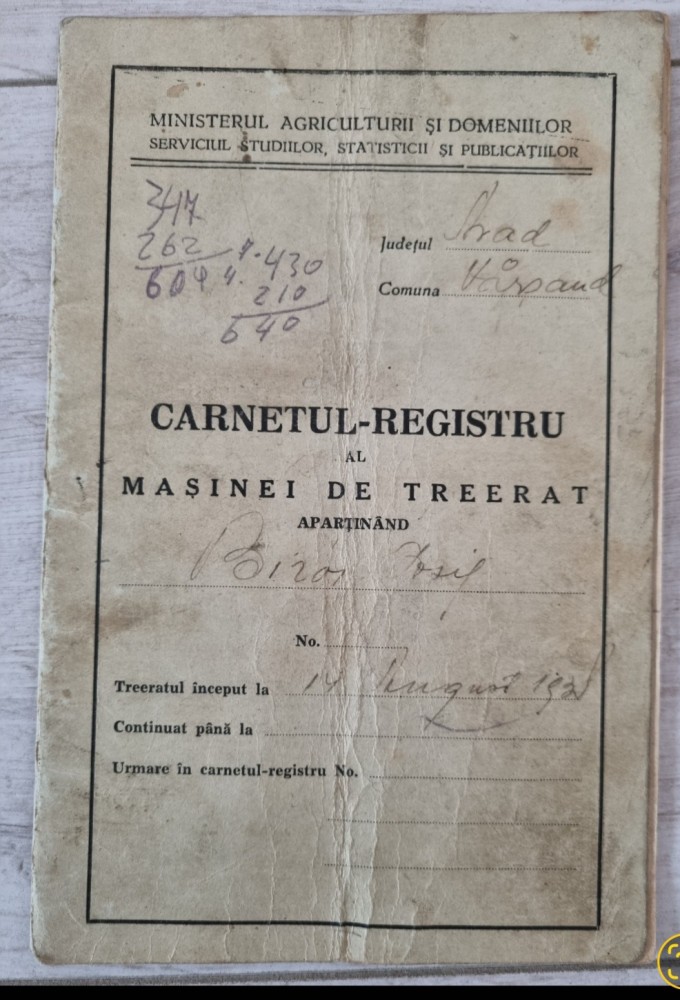 MINISTERUL AGRICULTURII ȘI DOMENIILOR
SERVICIUL STUDIILOR, STATISTICII ȘI PUBLICAȚIILOR
Județul Arad
Comuna Vârșand
262
604
430
210
640
CARNETUL-REGISTRU
AL
MAȘINEI DE TREERAT
APARȚINÂND
Biró Iosif
No.
Treeratul început la 14 August
Continuat până la
Urmare în carnetul-registru No.